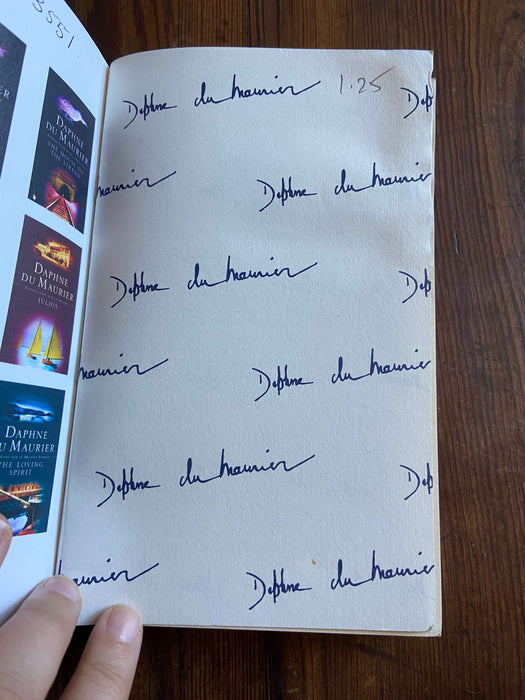 3551
DAPHNE
DU MAURIER
THE HOUSE ON
THE STRAND
DAPHNE
DU MAURIER
JULIUS
DAPHNE
DU MAURIER
THE LOVING
SPIRIT
Daphne du Maurier 1.25 Dap
Maurier Daphne du Maurier
Daphne du Maurier Da
Maurier Daphne du Maurier
Daphne du Maurier Dap
Maurier Daphne du Maurier